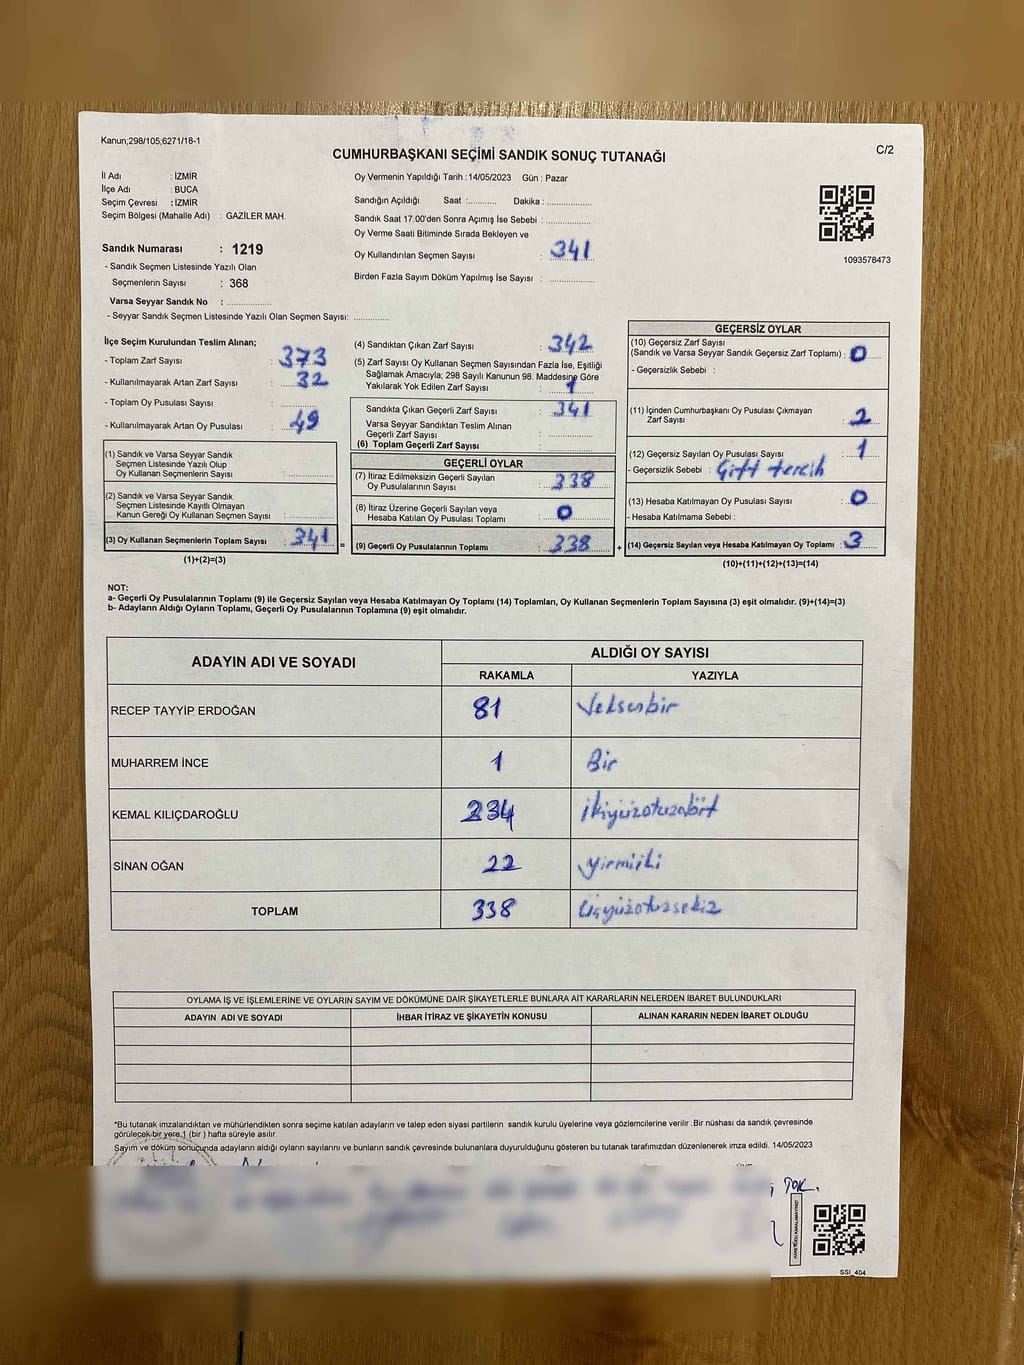 Kanun;298/105,6271/18-1
C/2
CUMHURBAŞKANI SEÇİMİ SANDIK SONUÇ TUTANAĞI
İl Adı : İZMİR
İlçe Adı : BUCA
Seçim Çevresi : İZMİR
Seçim Bölgesi (Mahalle Adı) : GAZİLER MAH.
Sandık Numarası : 1219
- Sandık Seçmen Listesinde Yazılı Olan
Seçmenlerin Sayısı : 368
Varsa Seyyar Sandık No : ................
- Seyyar Sandık Seçmen Listesinde Yazılı Olan Seçmen Sayısı: ............
Oy Vermenin Yapıldığı Tarih : 14/05/2023 Gün : Pazar
Sandığın Açıldığı Saat :.......... Dakika : ...............
Sandık Saat 17:00'den Sonra Açımış İse Sebebi : ...............
Oy Verme Saati Bitiminde Sırada Bekleyen ve
Oy Kullandırılan Seçmen Sayısı : 341
Birden Fazla Sayım Döküm Yapılmış İse Sayısı : ...............
1093578473
İlçe Seçim Kurulundan Teslim Alınan;
- Toplam Zarf Sayısı : 373
- Kullanılmayarak Artan Zarf Sayısı : 32
- Toplam Oy Pusulası Sayısı : ............
- Kullanılmayarak Artan Oy Pusulası : 49
(1) Sandık ve Varsa Seyyar Sandık
Seçmen Listesinde Yazılı Olup
Oy Kullanan Seçmenlerin Sayısı : ................
(2) Sandık ve Varsa Seyyar Sandık
Seçmen Listesinde Kayıtlı Olmayan
Kanun Gereği Oy Kullanan Seçmen Sayısı : ................
(3) Oy Kullanan Seçmenlerin Toplam Sayısı : 341 =
(1)+(2)=(3)
(4) Sandıktan Çıkan Zarf Sayısı : 342
(5) Zarf Sayısı Oy Kullanan Seçmen Sayısından Fazla İse, Eşitliği
Sağlamak Amacıyla; 298 Sayılı Kanunun 98. Maddesine Göre
Yakılarak Yok Edilen Zarf Sayısı : 1
Sandıkta Çıkan Geçerli Zarf Sayısı : 341
Varsa Seyyar Sandıktan Teslim Alınan
Geçerli Zarf Sayısı : ...............
(6) Toplam Geçerli Zarf Sayısı : ...............
GEÇERLİ OYLAR
(7) İtiraz Edilmeksizin Geçerli Sayılan
Oy Pusulalarının Sayısı : 338
(8) İtiraz Üzerine Geçerli Sayılan veya
Hesaba Katılan Oy Pusulası Toplamı : 0
(9) Geçerli Oy Pusulalarının Toplamı : 338 +
GEÇERSİZ OYLAR
(10) Geçersiz Zarf Sayısı
(Sandık ve Varsa Seyyar Sandık Geçersiz Zarf Toplamı) : 0
- Geçersizlik Sebebi :
(11) İçinden Cumhurbaşkanı Oy Pusulası Çıkmayan
Zarf Sayısı : 2
(12) Geçersiz Sayılan Oy Pusulası Sayısı : 1
- Geçersizlik Sebebi : Çift tercih
(13) Hesaba Katılmayan Oy Pusulası Sayısı : 0
- Hesaba Katılmama Sebebi :
(14) Geçersiz Sayılan veya Hesaba Katılmayan Oy Toplamı : 3
(10)+(11)+(12)+(13)=(14)
NOT:
a- Geçerli Oy Pusulalarının Toplamı (9) ile Geçersiz Sayılan veya Hesaba Katılmayan Oy Toplamı (14) Toplamları, Oy Kullanan Seçmenlerin Toplam Sayısına (3) eşit olmalıdır. (9)+(14)=(3)
b- Adayların Aldığı Oyların Toplamı, Geçerli Oy Pusulalarının Toplamına (9) eşit olmalıdır.
ADAYIN ADI VE SOYADI ALDIĞI OY SAYISI
RAKAMLA YAZIYLA
RECEP TAYYİP ERDOĞAN 81 Seksenbir
MUHARREM İNCE 1 Bir
KEMAL KILIÇDAROĞLU 234 ikiyüzotuzdört
SİNAN OĞAN 22 yirmiiki
TOPLAM 338 üçyüzotuzsekiz
OYLAMA İŞ VE İŞLEMLERİNE VE OYLARIN SAYIM VE DÖKÜMÜNE DAİR ŞİKAYETLERLE BUNLARA AİT KARARLARIN NELERDEN İBARET BULUNDUKLARI
ADAYIN ADI VE SOYADI İHBAR İTİRAZ VE ŞİKAYETİN KONUSU ALINAN KARARIN NEDEN İBARET OLDUĞU
*Bu tutanak imzalandıktan ve mühürlendikten sonra seçime katılan adayların ve talep eden siyasi partilerin sandık kurulu üyelerine veya gözlemcilerine verilir .Bir nüshası da sandık çevresinde
görülecek bir yere 1 (bir ) hafta süreyle asılır.
Sayım ve döküm sonucunda adayların aldığı oyların sayılarını ve bunların sandık çevresinde bulunanlara duyurulduğunu gösteren bu tutanak tarafımızdan düzenlenerek imza edildi. 14/05/2023
TOK.
SSİ_404